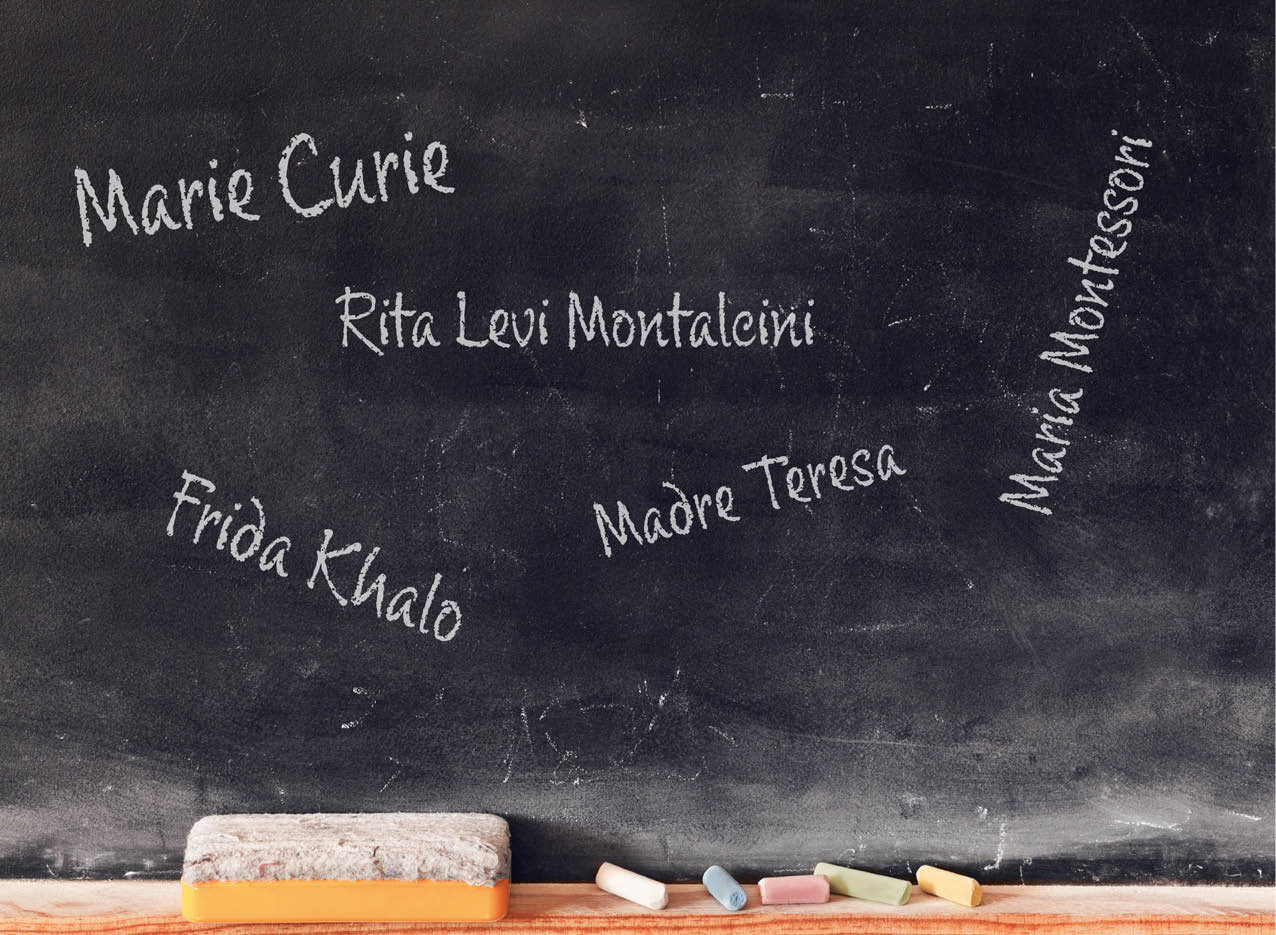 Marie Curie
Rita Levi Montalcini
Maria Montessori
Frida Khalo
Madre Teresa